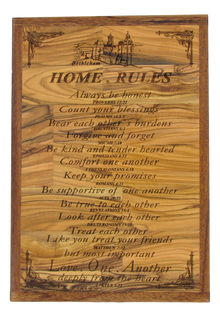 Bethlehem
HOME . RULES
Always be honest
PROVERBS
Count your blessings
Bear each other's burdens
Forgive and forget
Be kind and tender hearted
EPHESIANS
Comfort one another
Keep your promises
ROMANS
Be supportive of one another
ACTS
Be true to each other
REVELATION
Look after each other
DEUTERONOMY
Treat each other
Like you treat your friends
MATTHEW
but most important
Love . One . Another
deeply from the heart